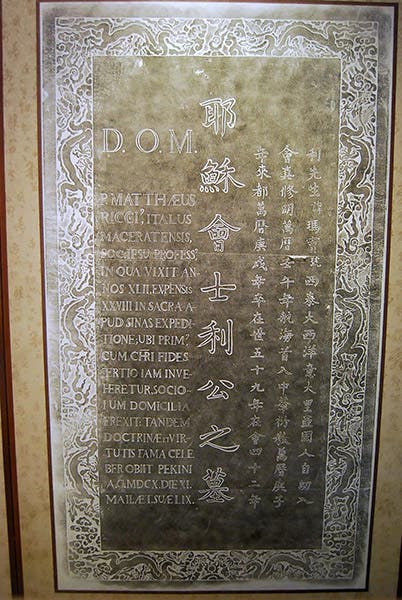 D. O. M.
P. MATTHÆUS
RICCI, ITALUS
MACERATENSIS,
SOC. IESU PROFESS,
IN QUA VIXIT AN-
NOS XLII. EXPENSIS
XXVIII IN SACRA A-
PUD SINAS EXPEDI-
TIONE; UBI PRIM,
CUM CHRI FIDES
TERTIO IAM INVE-
HERETUR, SOCIO-
IUM DOMICILIA
EREXIT. TANDEM
DOCTRINÆ ET VIR-
TUTIS FAMA CELE-
BER OBIIT PEKINI
A.C. MDCX. DIE XI.
MAII. Æ. SUÆ LIX.
耶穌會士利公之墓
利先生諱瑪竇號西泰大西洋意大里亞國人自幼入
會真修明萬曆壬午年航海首入中華衍教萬曆庚子
年來都萬曆庚戌年卒在世五十九年在會四十二年